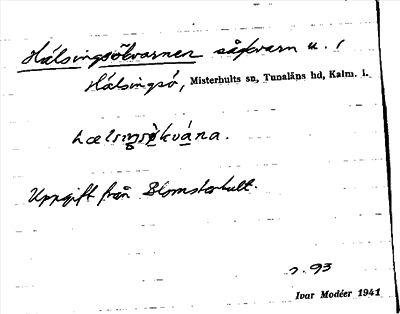 Hälsingsökvarnen sågkvarn u. /
Hälsingsö, Misterhults sn, Tunaläns hd, Kalm. l.
hælsıŋsø̀kvána.
Uppgift från Blomsterhult.
s. 93
Ivar Modéer 1941